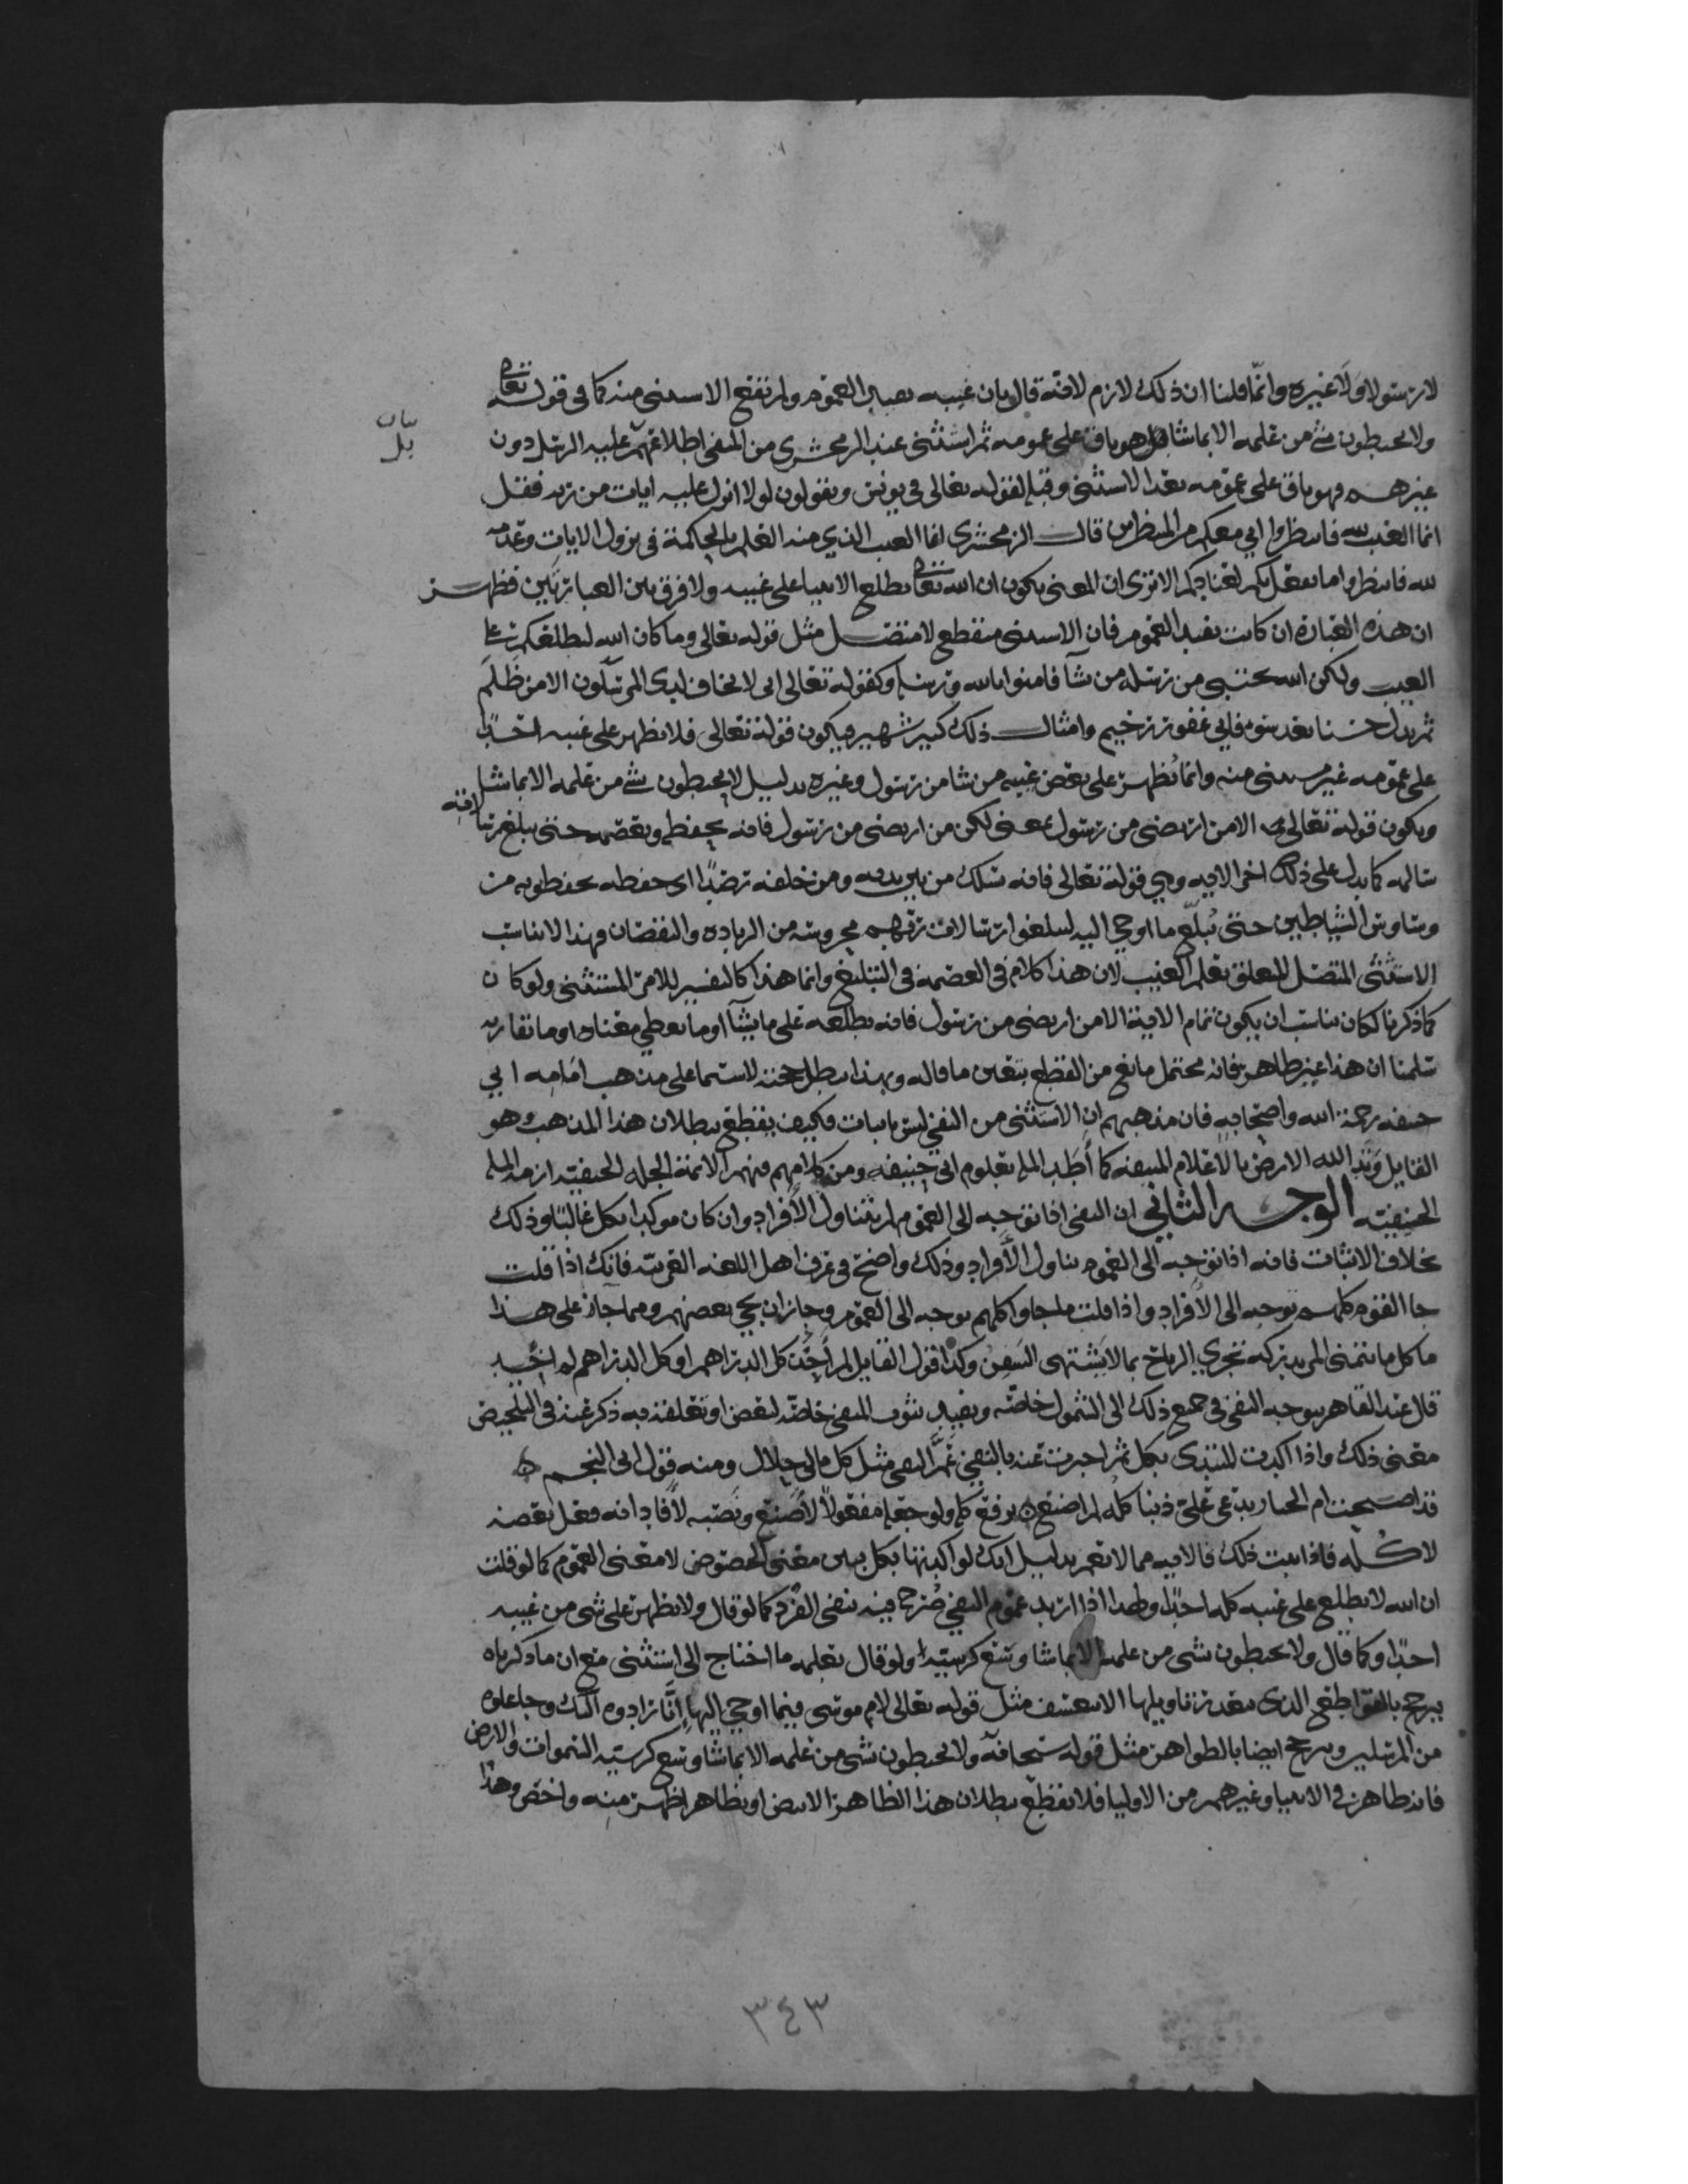 لا رسولا ولا غيره وانما قلنا ان ذلك لازم لانه قال بان غيبه يفيد العموم ولم يقع الاستثنى منه كما في قوله تعالى
ولا يحيطون بشي من علمه الا بما شا بل هو باق على عمومه ثم استثنى عند الزمخشري من المنفي اطلاعهم عليه الرسل دون
بيان
بل
غيرهم فهو باق على عمومه بعد الاستثنى وقبله لقوله تعالى في يونس ويقولون لولا انزل عليه ايات من ربه فقل
انما الغيب لله فانتظروا اني معكم من المنتظرين قال الزمخشري انما الغيب الذي منه العلم بالحكمة في نزول الايات وعدمه
لله فانتظروا ما يفعل بكم لعنادكم الا ترى ان المعنى يكون ان الله تعالى يطلع الانبيا على غيبه ولا فرق بين العبارتين فظهر
ان هذه العبارة ان كانت تفيد العموم فان الاستثنى منقطع لا متصل مثل قوله تعالى وما كان الله ليطلعكم على
الغيب ولكن الله يجتبي من رسله من يشآ فامنوا بالله ورسله وكقوله تعالى اني لا يخاف لدي المرسلون الا من ظلم
ثم بدل حسنا بعد سوء فاني غفور رحيم وامثال ذلك كثير شهير فيكون قوله تعالى فلا يظهر على غيبه احدا
على عمومه غير مستثنى منه وانما يظهر على بعض غيبه من شا من رسول وغيره بدليل لا يحيطون بشي من علمه الا بما شا
ويكون قوله تعالى الا من ارتضى من رسول بمعنى لكن من ارتضى من رسول فانه يحفظه ويعصمه حتى يبلغ رسالاته
سالمه كما يدل على ذلك اخر الايه وهي قوله تعالى فانه يسلك من بين يديه ومن خلفه رصدا اي حفظه يحفظونه من
وساوس الشياطين حتى يبلغ ما اوحي اليه ليبلغوا رسالات ربهم محروسه من الزياده والنقصان فهذا لا يناسب
الاستثنى المتصل المعلق بعلم الغيب لان هذا كلام في العصمه في التبليغ وانما هذا كالتفسير للامر المستثنى ولو كان
كما ذكر لكان يناسب ان يكون تمام الاية الا من ارتضى من رسول فانه يطلعه على ما يشآ او ما يعطي معناه او ما يقاربه
سلمنا ان هذا غير ظاهر فانه محتمل مانع من القطع بتعين ما قاله وبهذا تبطل حجته لا سيما على مذهب امامه ابي
حنيفه رحمة الله واصحابه فان مذهبهم ان الاستثنى من النفي ليس باثبات فكيف يقطع ببطلان هذا المذهب وهو
القايل وتد الله الارض بالاعلام المنيفه كما وطد المله بعلوم ابي حنيفه ومن كلامهم فهم الائمة الجله الحنفيه ازمه المله
الحنيفيه الوجه الثاني ان النفي اذا توجه الى العموم لم يتناول الافراد وان كان موكدا بكل غالبا وذلك
بخلاف الاثبات فانه اذا توجه الى العموم يتناول الافراد وذلك واضح في عرف اهل اللغه العربيه فانك اذا قلت
جا القوم كلهم توجه الى الافراد واذا قلت ما جاوا كلهم توجه الى العموم وجاز ان يجي بعضهم ومما جا على هذا
ما كل ما يتمنى المرء يدركه تجري الرياح بما لا يشتهى السفن وكذا قول القايل لم اخذ كل الدراهم او كل الدراهم لم اخذ
قال عبد القاهر يتوجه النفي في جميع ذلك الى الشمول خاصه ويفيد ثبوت النفي خاصه لبعض او تعلقه به ذكر عنه في التلخيص
معنى ذلك واذا اكدت المبتدى بكل ثم اخبرت عنه بالنفي عم النفي مثل كل مالي حلال ومنه قول ابي النجم
قد اصبحت ام الخيار تدعي علي ذنبا كله لم اصنع برفع كله ولو جعله مفعولا لاصنع ونصبه لافاد انه فعل بعضه
لا كله فاذا ثبت ذلك فالايه مما لا تعم بدليل انك لو اكدتها بكل يبين معنى الخصوص لا معنى العموم كما لو قلت
ان الله لا يطلع على غيبه كله احدا ولهذا اذا اريد عموم النفي صرح فيه بنفي الفرد كما لو قال ولا يظهر على شي من غيبه
احدا وكما قال ولا يحيطون بشى من علمه الا بما شا وسع كرسيه ولو قال بعلمه ما احتاج الى استثنى مع ان ما ذكرناه
يرجح بالقواطع الذي يتعذر تاويلها الا بتعسف مثل قوله تعالى لام موسى فيما اوحي اليها انا رادوه اليك وجاعلوه
من المرسلين ويرجح ايضا بالظواهر مثل قوله سبحانه ولا يحيطون بشى من علمه الا بما شا وسع كرسيه السموات والارض
فانه ظاهر في الانبيا وغيرهم من الاوليا فلا نقطع ببطلان هذا الظاهر الا بنص او بظاهر اظهر منه واخص وهذا
٣٤٣